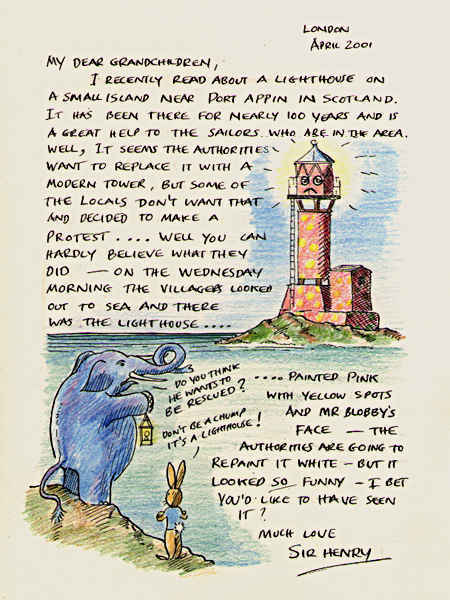 LONDON
APRIL 2001
MY DEAR GRANDCHILDREN,
I RECENTLY READ ABOUT A LIGHTHOUSE ON
A SMALL ISLAND NEAR PORT APPIN IN SCOTLAND.
IT HAS BEEN THERE FOR NEARLY 100 YEARS AND IS
A GREAT HELP TO THE SAILORS WHO ARE IN THE AREA.
WELL, IT SEEMS THE AUTHORITIES
WANT TO REPLACE IT WITH A
MODERN TOWER, BUT SOME OF
THE LOCALS DON'T WANT THAT
AND DECIDED TO MAKE A
PROTEST .... WELL YOU CAN
HARDLY BELIEVE WHAT THEY
DID — ON THE WEDNESDAY
MORNING THE VILLAGERS LOOKED
OUT TO SEA AND THERE
WAS THE LIGHTHOUSE ....
DO YOU THINK
HE WANTS TO
BE RESCUED?
DON'T BE A CHUMP
IT'S A LIGHTHOUSE!
.... PAINTED PINK
WITH YELLOW SPOTS
AND MR BLOBBY'S
FACE — THE
AUTHORITIES ARE GOING TO
REPAINT IT WHITE — BUT IT
LOOKED SO FUNNY — I BET
YOU'D LIKE TO HAVE SEEN
IT?
MUCH LOVE
SIR HENRY